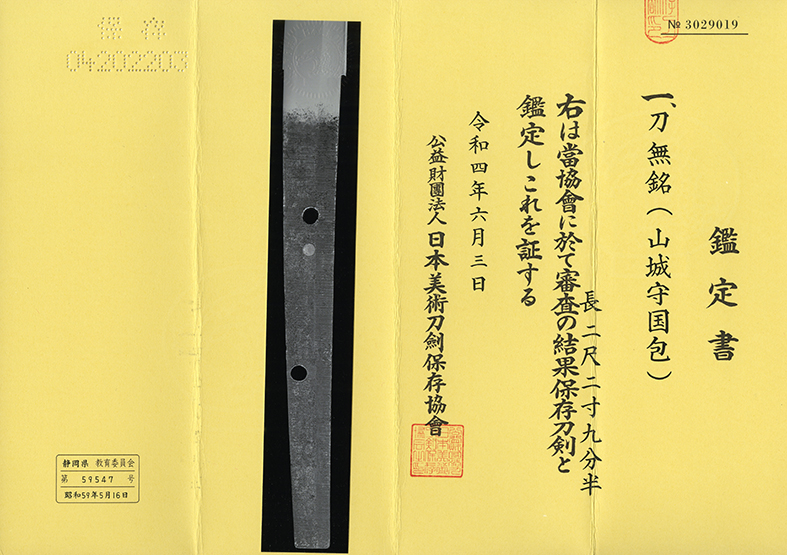 № 3029019
鑑定書
一、刀 無銘(山城守国包)
長二尺二寸九分半
右は當協會に於て審査の結果保存刀剣と
鑑定しこれを証する
令和四年六月三日
公益財團法人 日本美術刀劍保存協會
保存
04202203
静岡県 教育委員会
第 59547 号
昭和59年5月16日